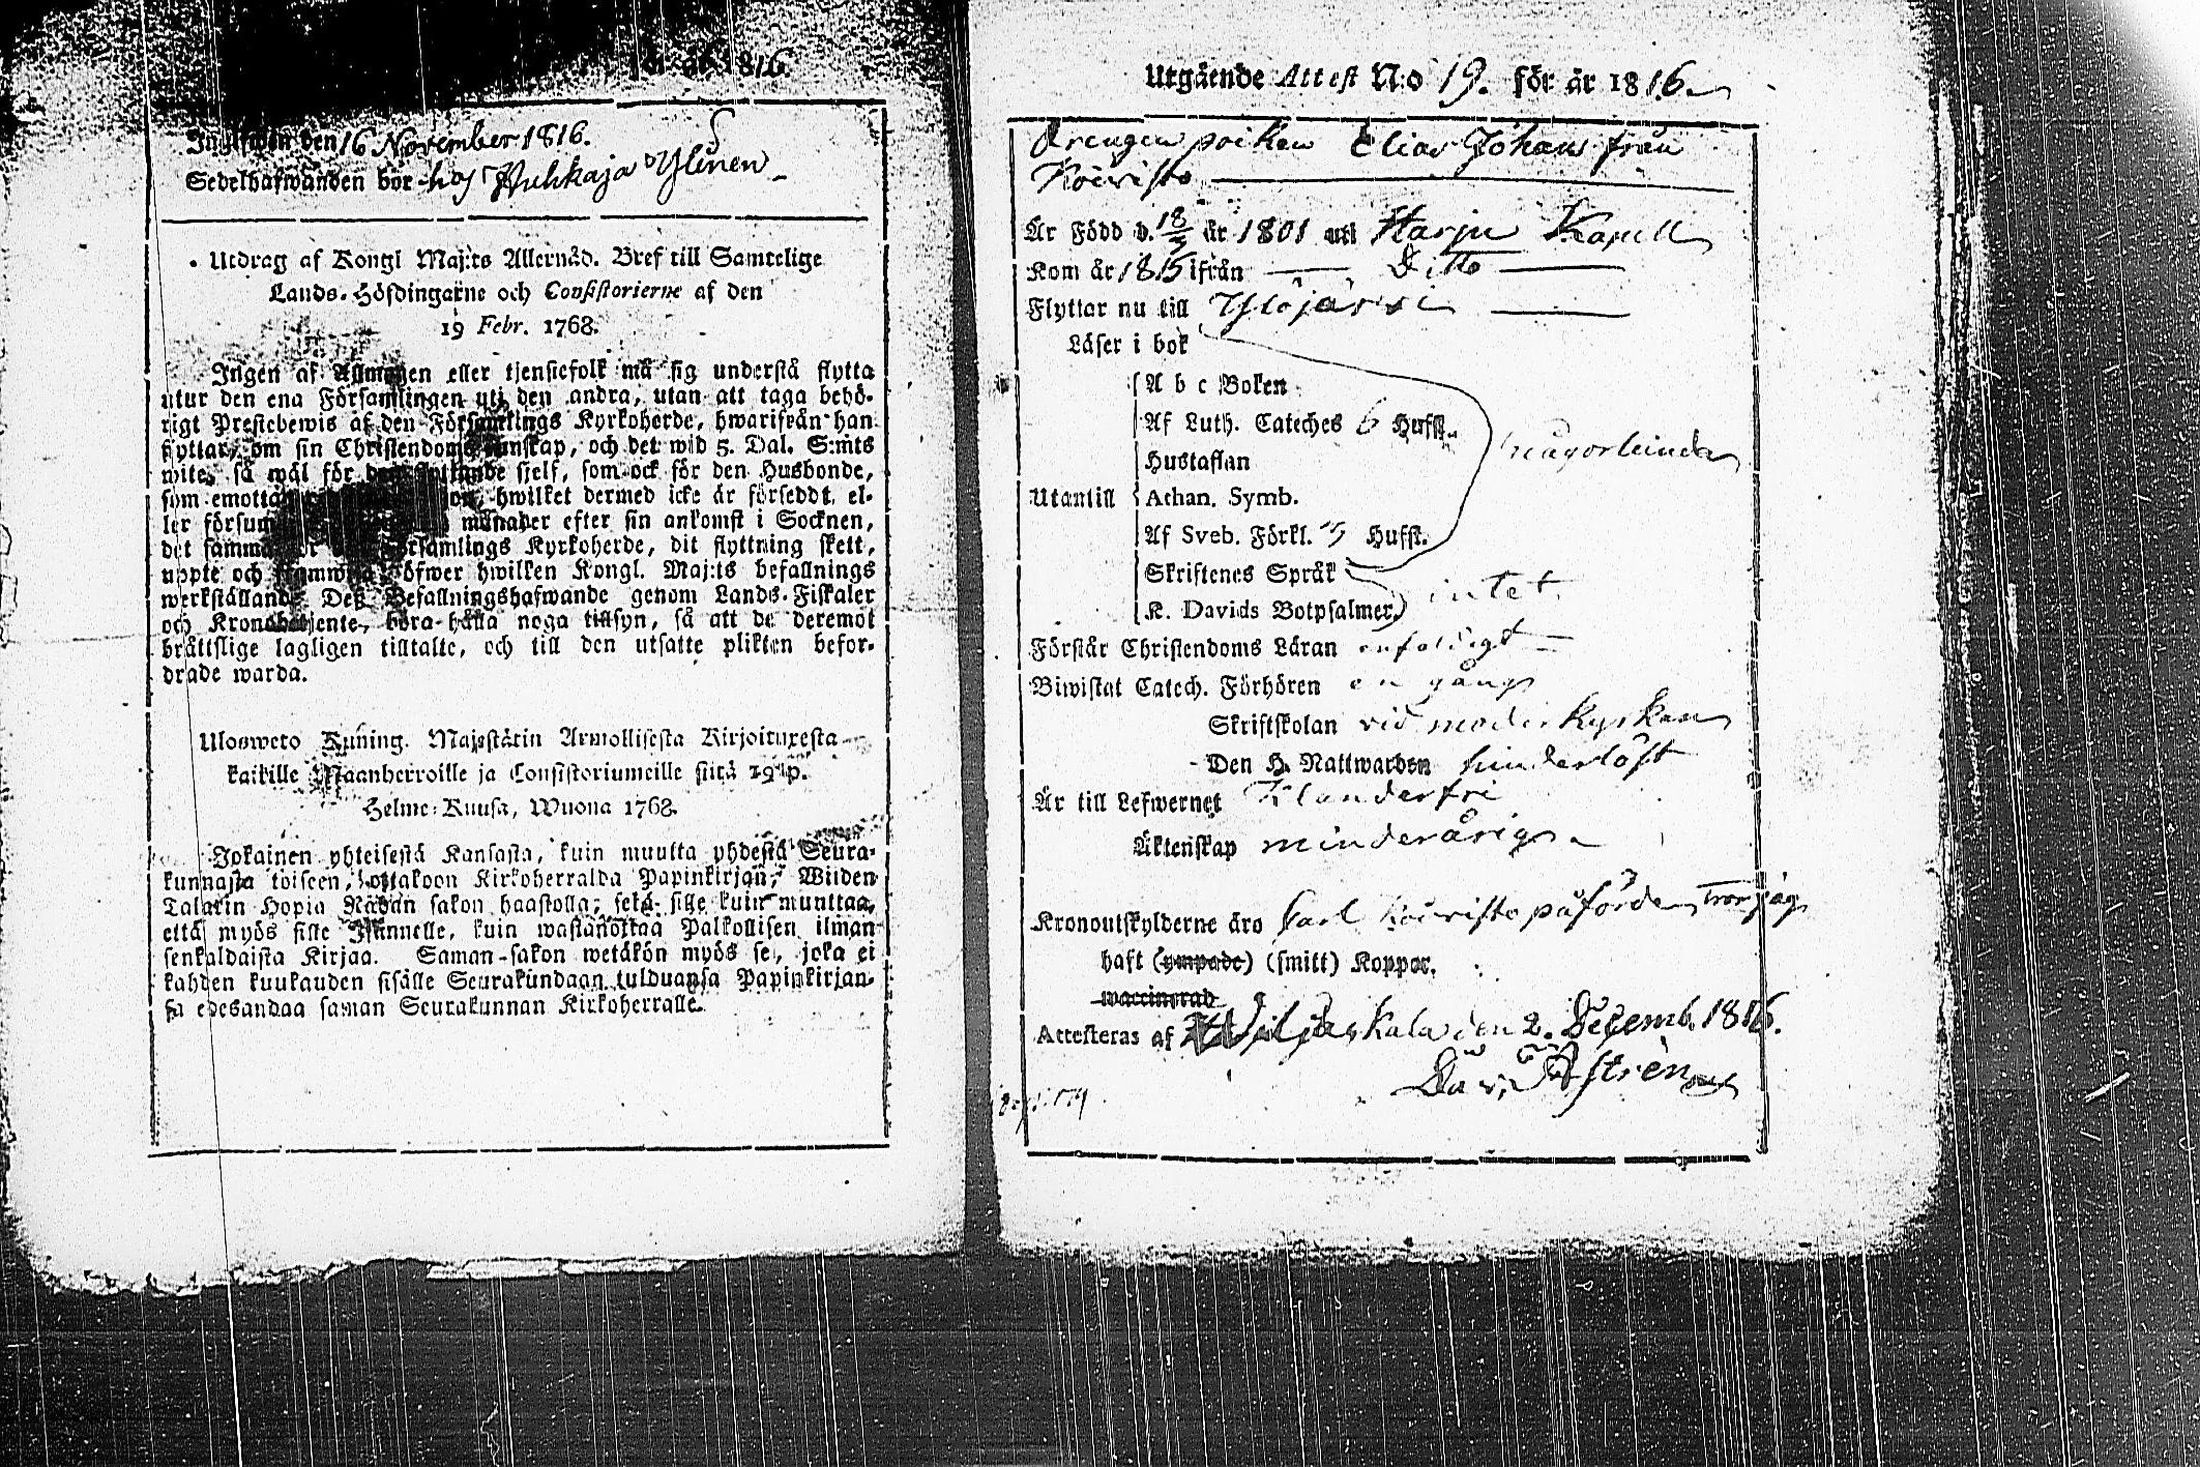 för år 1816.
Inglifwen den 16 November 1816.
Sedelhafwanden bor hos Puhkaja Ylinen
Utdrag af Kongl Maj:ts Allernåd. Bref till Samtelige
Lands-Höfdingarne och Consistorierne af den
19 Febr. 1768.
Ingen af Allmogen eller tjenstefolk må sig understå flytta
utur den ena Församlingen uti den andra, utan att taga behö-
rigt Prestebewis af den Församlings Kyrkoherde, hwarifrån han
flyttar, om sin Christendoms kunskap, och det wid 5. Dal. S:mts
wite, så wäl för den flyttande sjelf, som ock för den Husbonde,
som emottar hwilket dermed icke är försedt, el-
ler försum månader efter sin ankomst i Socknen,
det samma för Församlings Kyrkoherde, dit flyttning skett,
uppte och framwisa öfwer hwilken Kongl. Maj:ts befallnings
werkställande Deß Befallningshafwande genom Lands-Fiskaler
och Kronobetjente, böra hålla noga tillsyn, så att de deremot
bråttslige lagligen tilltalte, och till den utsatte plikten befor-
drade warda.
Ulosweto Kuning. Majestätin Armollisesta Kirjoituxesta
kaikille Maanherroille ja Consistoriumeille siitä 19 p.
Helme-Kuusa, Wuona 1768.
Jokainen yhteisestä Kansasta, kuin muutta yhdestä Seura-
kunnasta toiseen, ottakoon Kirkoherralda Papinkirjan, Wiiden
Talarin Hopia Rahan sakon haastolla; sekä sille kuin muuttaa,
että myös sille Isännelle, kuin wastanottaa Palkollisen ilman
senkaldaista Kirjaa. Saman-sakon wetäkön myös se, joka ei
kahden kuukauden sisälle Seurakundaan tulduansa Papinkirjan-
sa edesandaa saman Seurakunnan Kirkoherralle.
Utgående Attest N:o 19. för år 1816.
Drengen poiken Elias Johans från
Koivisto
Är Född d. 18/3 år 1801 uti Harju Kapell
Kom år 1815 ifrån Ditto
Flyttar nu till Ylöjärvi
Läser i bok
A b c Boken
Af Luth. Cateches 6 Hufst.
någorlunda
Hustaflan
Utantill Athan. Symb.
Af Sveb. Förkl. 3 Hufst.
Skriftenes Språk
intet
K. Davids Botpsalmer
Förstår Christendoms Läran enfaldigt
Biwistat Catech. Förhören en gång
Skriftskolan vid moderkyrkan
Den H. Nattwarden hinderlöst
Är till Lefwernet Klanderfri
Äktenskap minderårig
Kronoutskylderne äro Carl Koivisto påförde, tror jag
haft (ympade) (smitt) Koppor.
waccinerad
Attesteras af Viljakkala den 2. Decemb. 1816.
Dav. Åstrén